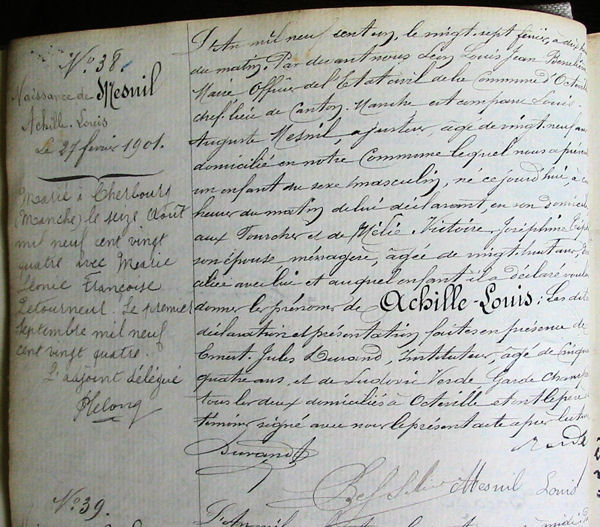 N° 38.
Naissance de Mesnil
Achille-Louis
Le 27 février 1901.
Marié à Cherbourg
(Manche) le seize Août
mil neuf cent vingt
quatre avec Marie
Léonie Françoise
Letourneur. Le premier
Septembre mil neuf
cent vingt quatre.
L'adjoint délégué
N° 39.
L'An mil neuf cent un, le vingt-sept février, à
du matin. Par devant nous Léon Louis Jean
Maire Officier de l'Etat civil de la Commune d'Octe
chef-lieu de Canton, Manche est comparu Louis
Auguste Mesnil ajusteur, âgé de vingt-neuf an
domicilié en notre Commune lequel nous a présen
un enfant du sexe masculin, né ce jourd'hui, à
heures du matin de lui déclarant, en son domicile
aux Fourches et de Mélie Victoire Joséphine
son épouse ménagère, âgée de vingt-huit ans, do
ciliée avec lui et auquel enfant il a déclaré voulo
donner les prénoms de Achille-Louis; Les dite
déclaration et présentation faites en présence de
Ernest Jules Durand, Instituteur, âgé de cinqua
quatre ans, et de Ludovic Garde Champ
tous les deux domiciliés à Octeville et ont le père e
témoins signé avec nous le présent acte après lecture
Durand
Mesnil Louis
L'An mil